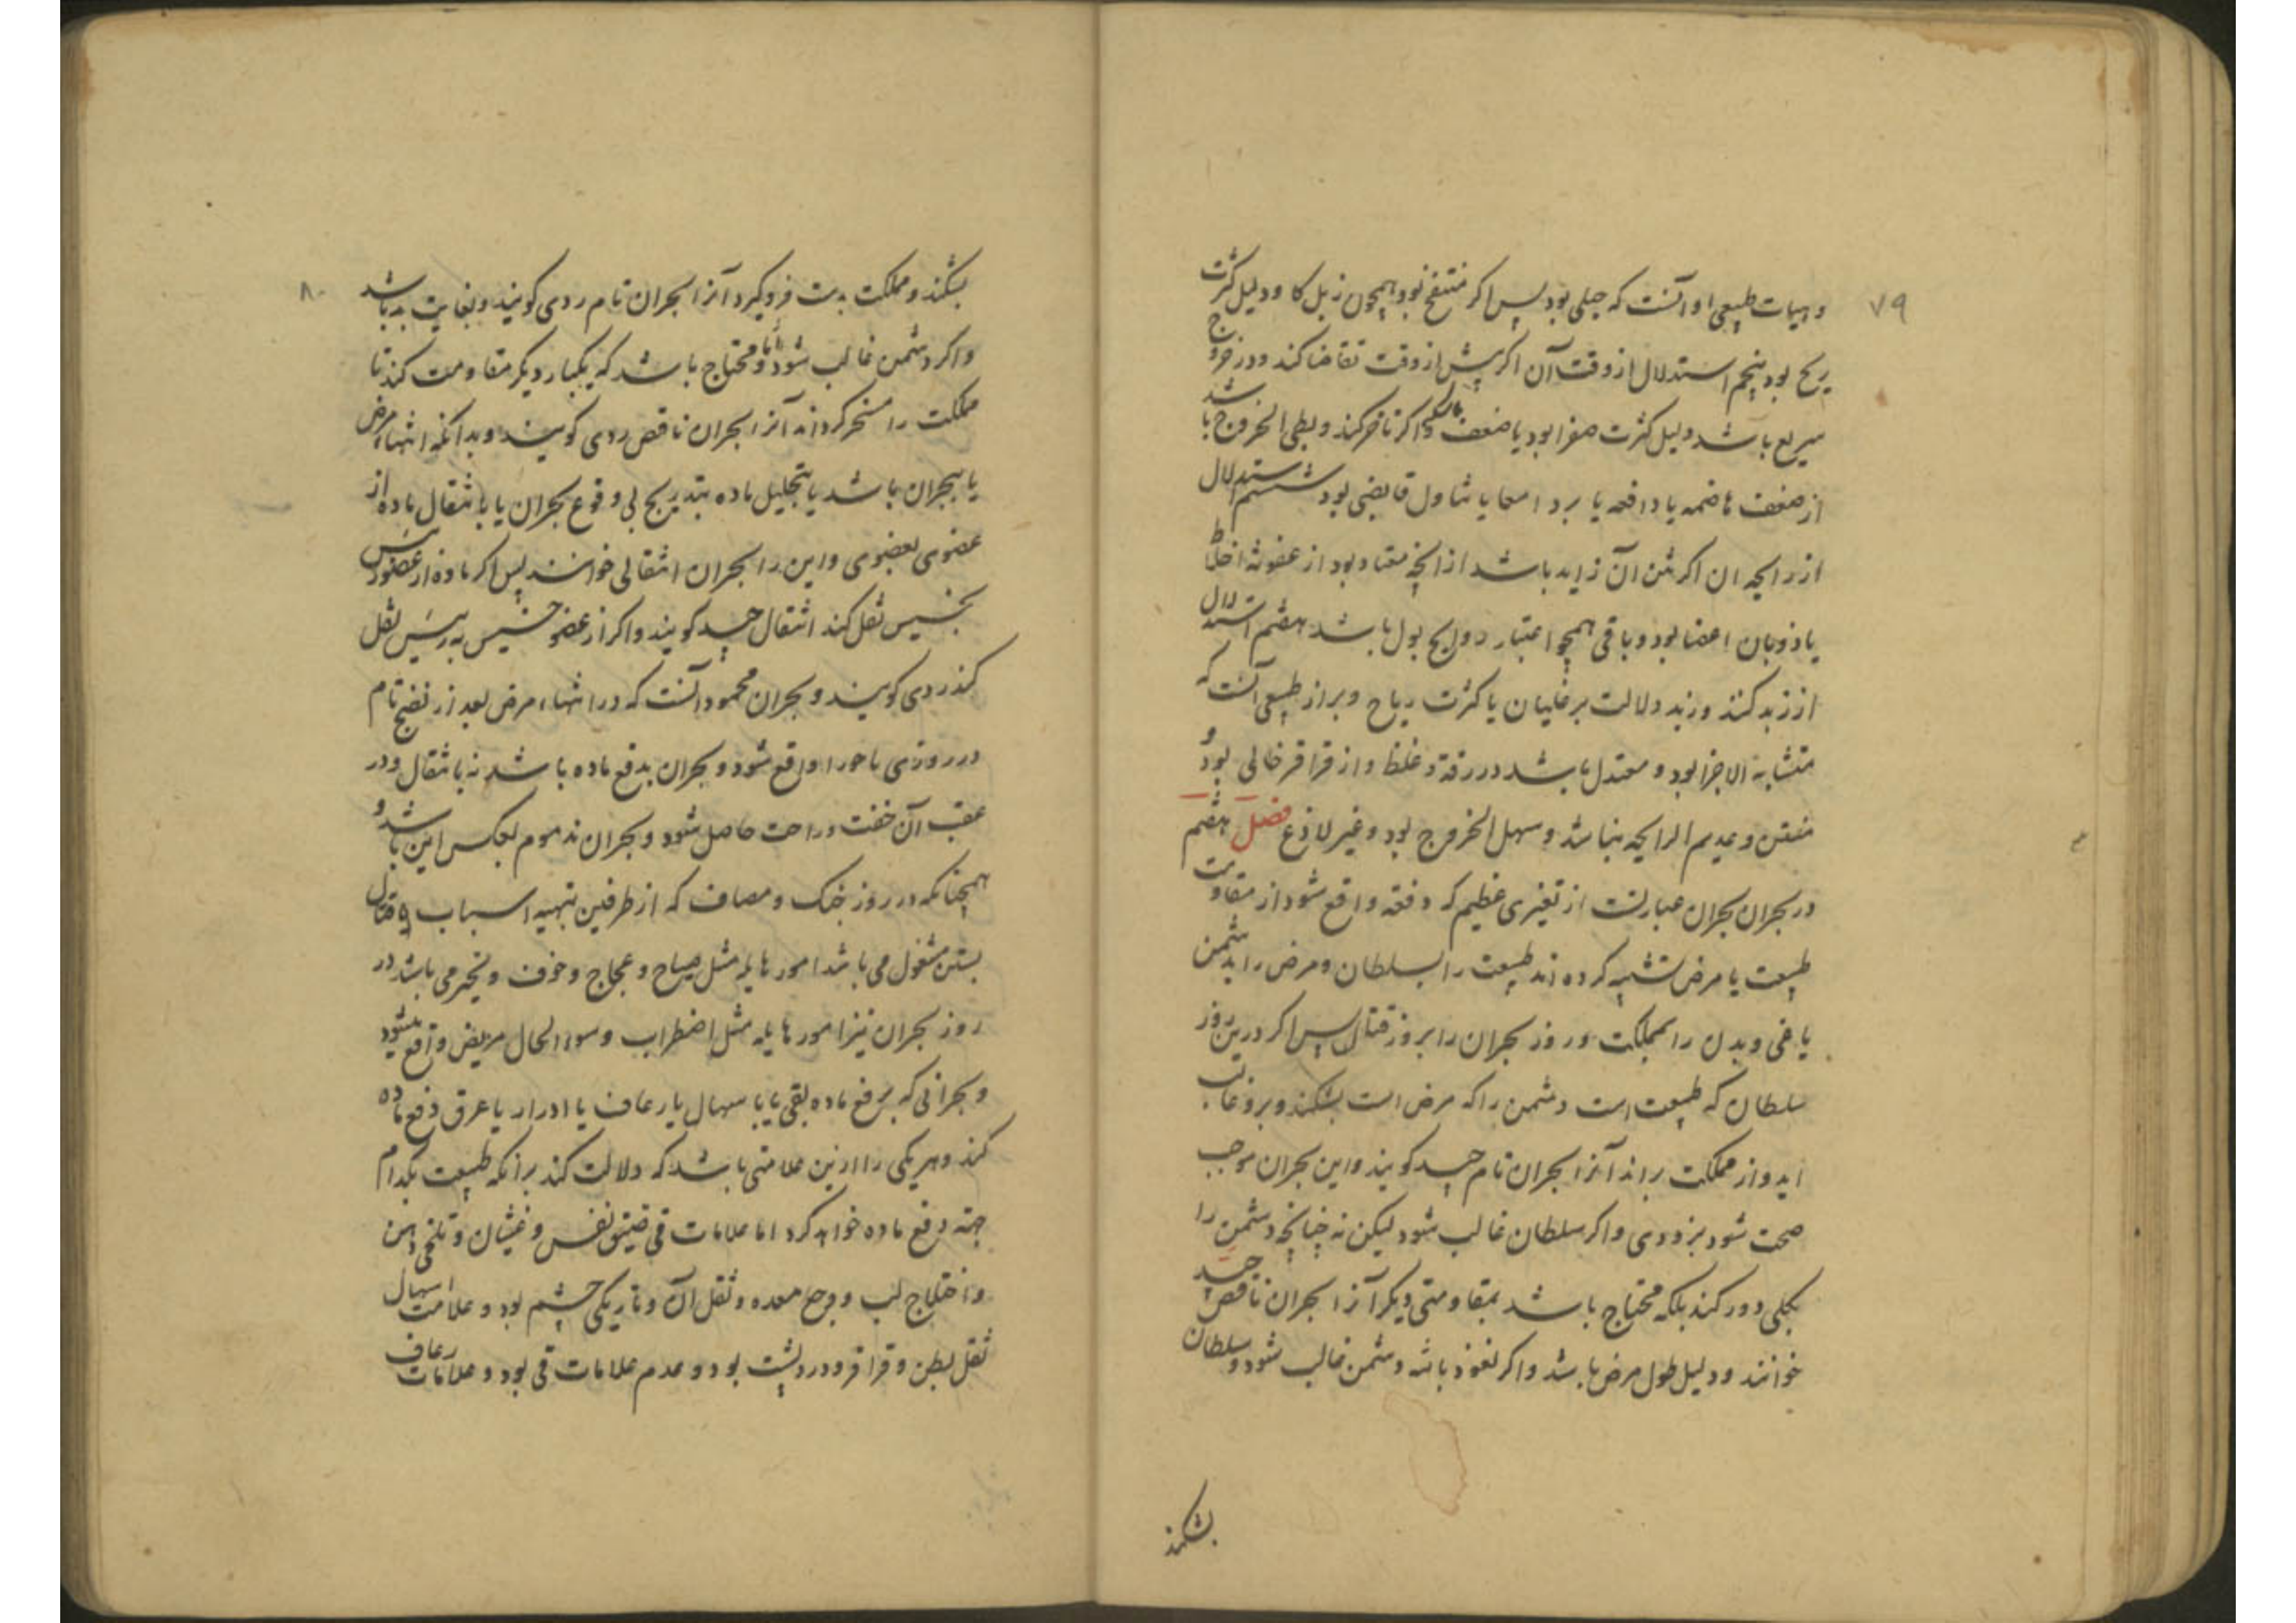 ۷۹
و هیات طبیعی او آنست که جبلی بود پس اکر منتفخ بود همچون زبل کا و دلیل کثرت
ریح بود پنجم استدلال از وقت آن اکر پیش از وقت تقاضا کند و در خروج
سریع باشد دلیل کثرت صفرا بود یا ضعف ماسکه و اکر تاخر کند و بطی الخروج باشد
از ضعف هاضمه یا دافعه یا برد امعا یا تناول قابضی بود ششم استدلال
از رایحه ان اکر نتن آن زاید باشد از انچه معتاد بود از عفونة اخلاط
یا ذوبان اعضا بود و باقی همچو اعتبار روایح بول باشد هفتم استدلال
از زبد کنند و زبد دلالت بر غلیان یا کثرت ریاح و براز طبیعی آنست که
متشابه الاجزا بود و معتدل باشد در رقة و غلظ و از قراقر خالی بود و
منتن و عدیم الرایحه نباشد و سهل الخروج بود و غیر لاذع فصل هفتم
در بحران بحران عبارتست از تغیری عظیم که دفعة واقع شود از مقاومت
طبیعت یا مرض تشبیه کرده اند طبیعت را بسلطان و مرض را بدشمن
یاغی و بدن را بمملکت و روز بحران را بروز قتال پس اکر درین روز
سلطان که طبیعت است دشمن را که مرض است بشکند و برو غالب
اید و از مملکت براند آنرا بحران تام جید کویند و این بحران موجب
صحت شود بزودی و اکر سلطان غالب شود لیکن نه چنانچه دشمن را
بکلی دور کند بلکه محتاج باشد بمقاومتی دیکر آنرا بحران ناقص جید
خوانند و دلیل طول مرض باشد و اکر نعوذ بالله دشمن غالب شود و سلطان
بشکند
۸۰
بشکند و مملکت بدست فروکیرد آنرا بحران تام ردی کویند و بغایت بد باشد
و اکر دشمن غالب شود اما محتاج باشد که یکبار دیکر مقاومت کند تا
مملکت را مسخر کرداند آنرا بحران ناقص ردی کویند و بدانکه انتهاء مرض
یا ببحران باشد یا بتحلیل ماده بتدریج بی وقوع بحران یا بانتقال ماده از
عضوی بعضوی و این را بحران انتقالی خوانند پس اکر ماده از عضو رئیس
بخسیس نقل کند انتقال جید کویند و اکر از عضو خسیس به رئیس نقل
کند ردی کویند و بحران محمود آنست که در انتهاء مرض بعد از نضج تام
در روزی باحورا واقع شود و بحران بدفع ماده باشد نه بانتقال و در
عقب آن خفت و راحت حاصل شود و بحران مذموم بعکس این باشد و
همچنانکه در روز جنک و مصاف که از طرفین بتهییه اسباب قتال
بستن مشغول می باشد امور هایله مثل صیاح و عجاج و خوف و تحیر می باشد در
روز بحران نیز امور هایله مثل اضطراب و سوء الحال مریض واقع میشود
و بحرانی که بدفع ماده بقی یا باسهال یا رعاف یا ادرار یا عرق دفع ماده
کند و هریکی را ازین علامتی باشد که دلالت کند برانکه طبیعت بکدام
جهة دفع ماده خواهد کرد اما علامات قی ضیق نفس و غثیان و تلخی دهن
و اختلاج لب و وجع معده و ثقل آن و تاریکی چشم بود و علامت اسهال
ثقل بطن و قراقر و درد پشت بود و عدم علامات قی بود و علامات رعاف